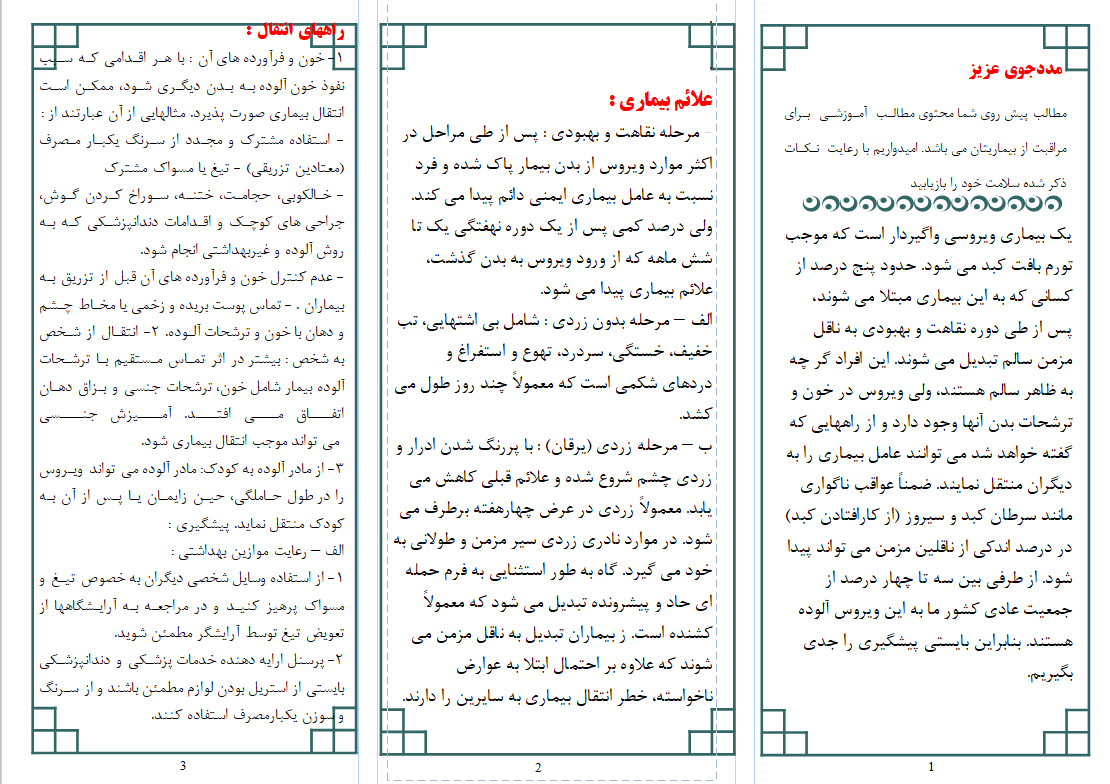 مددجوی عزیز
مطالب پیش روی شما محتوی مطالب آموزشی برای
مراقبت از بیماریتان می باشد. امیدواریم با رعایت نکات
ذکر شده سلامت خود را بازیابید
یک بیماری ویروسی واگیردار است که موجب
تورم بافت کبد می شود. حدود پنج درصد از
کسانی که به این بیماری مبتلا می شوند،
پس از طی دوره نقاهت و بهبودی به ناقل
مزمن سالم تبدیل می شوند. این افراد گر چه
به ظاهر سالم هستند، ولی ویروس در خون و
ترشحات بدن آنها وجود دارد و از راههایی که
گفته خواهد شد می توانند عامل بیماری را به
دیگران منتقل نمایند. ضمناً عواقب ناگواری
مانند سرطان کبد و سیروز (از کارافتادن کبد)
در درصد اندکی از ناقلین مزمن می تواند پیدا
شود. از طرفی بین سه تا چهار درصد از
جمعیت عادی کشور ما به این ویروس آلوده
هستند. بنابراین بایستی پیشگیری را جدی
بگیریم.
1
علائم بیماری :
- مرحله نقاهت و بهبودی : پس از طی مراحل در
اکثر موارد ویروس از بدن بیمار پاک شده و فرد
نسبت به عامل بیماری ایمنی دائم پیدا می کند.
ولی درصد کمی پس از یک دوره نهفتگی یک تا
شش ماهه که از ورود ویروس به بدن گذشت،
علائم بیماری پیدا می شود.
الف – مرحله بدون زردی : شامل بی اشتهایی، تب
خفیف، خستگی، سردرد، تهوع و استفراغ و
دردهای شکمی است که معمولاً چند روز طول می
کشد.
ب – مرحله زردی (یرقان) : با پررنگ شدن ادرار و
زردی چشم شروع شده و علائم قبلی کاهش می
یابد. معمولاً زردی در عرض چهارهفته برطرف می
شود. در موارد نادری زردی سیر مزمن و طولانی به
خود می گیرد. گاه به طور استثنایی به فرم حمله
ای حاد و پیشرونده تبدیل می شود که معمولاً
کشنده است. ز بیماران تبدیل به ناقل مزمن می
شوند که علاوه بر احتمال ابتلا به عوارض
ناخواسته، خطر انتقال بیماری به سایرین را دارند.
2
راههای انتقال :
۱- خون و فرآورده های آن : با هر اقدامی که سبب
نفوذ خون آلوده به بدن دیگری شود، ممکن است
انتقال بیماری صورت پذیرد. مثالهایی از آن عبارتند از :
- استفاده مشترک و مجدد از سرنگ یکبار مصرف
(معتادین تزریقی) - تیغ یا مسواک مشترک
- خالکوبی، حجامت، ختنه، سوراخ کردن گوش،
جراحی های کوچک و اقدامات دندانپزشکی که به
روش آلوده و غیربهداشتی انجام شود.
- عدم کنترل خون و فرآورده های آن قبل از تزریق به
بیماران . - تماس پوست بریده و زخمی یا مخاط چشم
و دهان با خون و ترشحات آلوده. ۲- انتقال از شخص
به شخص : بیشتر در اثر تماس مستقیم با ترشحات
آلوده بیمار شامل خون، ترشحات جنسی و بزاق دهان
اتفاق می افتد. آمیزش جنسی
می تواند موجب انتقال بیماری شود.
۳- از مادر آلوده به کودک: مادر آلوده می تواند ویروس
را در طول حاملگی، حین زایمان یا پس از آن به
کودک منتقل نماید. پیشگیری :
الف – رعایت موازین بهداشتی :
۱- از استفاده وسایل شخصی دیگران به خصوص تیغ و
مسواک پرهیز کنید و در مراجعه به آرایشگاهها از
تعویض تیغ توسط آرایشگر مطمئن شوید.
۲- پرسنل ارایه دهنده خدمات پزشکی و دندانپزشکی
بایستی از استریل بودن لوازم مطمئن باشند و از سرنگ
و سوزن یکبارمصرف استفاده کنند.
3